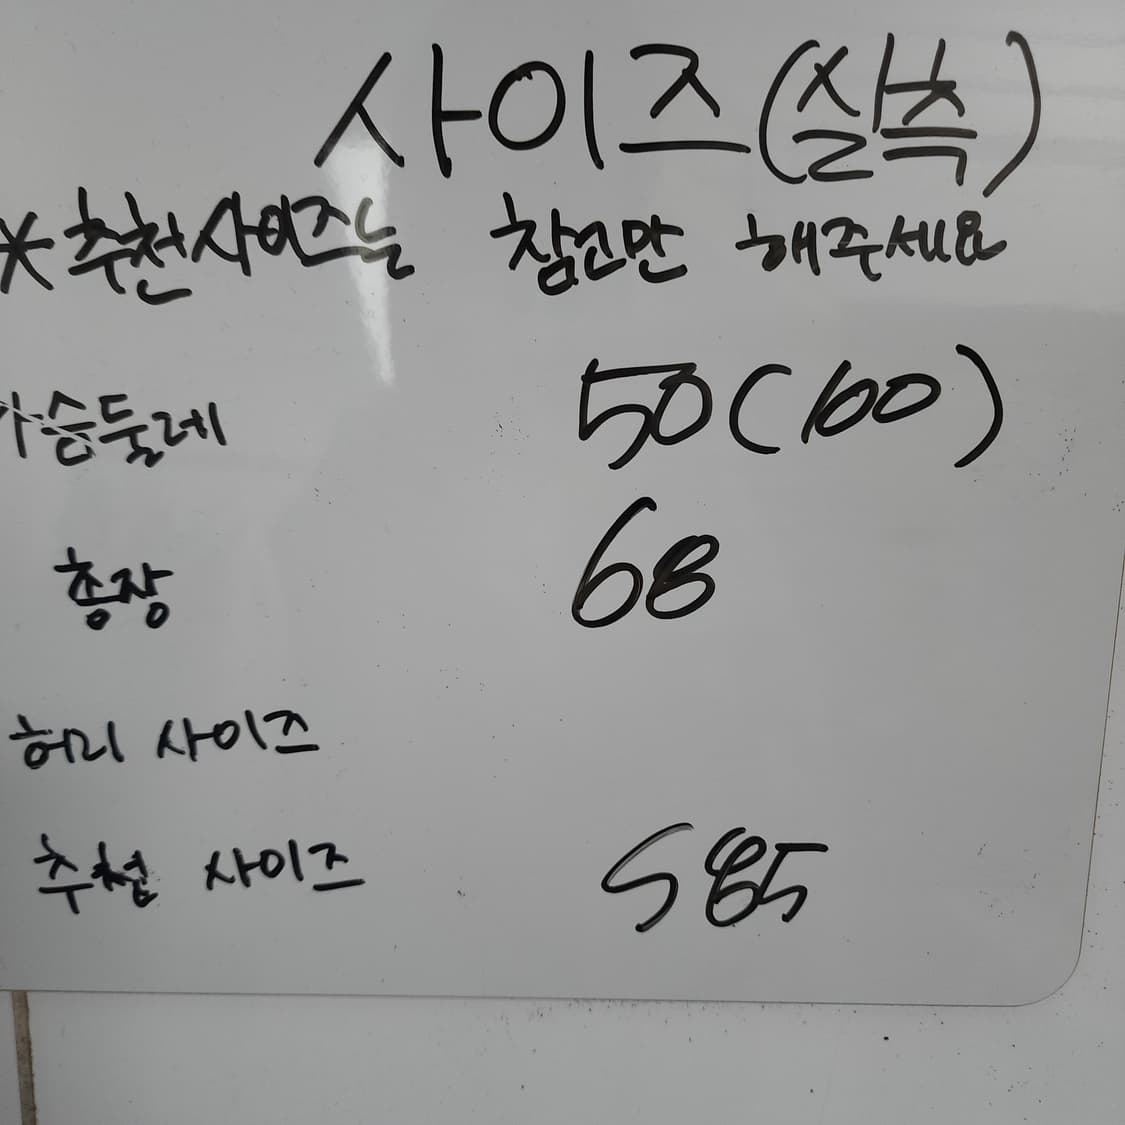 사이즈(실측)
*추천사이즈는 참고만 해주세요
가슴둘레 50(100)
총장 68
허리 사이즈
추천 사이즈 S 85